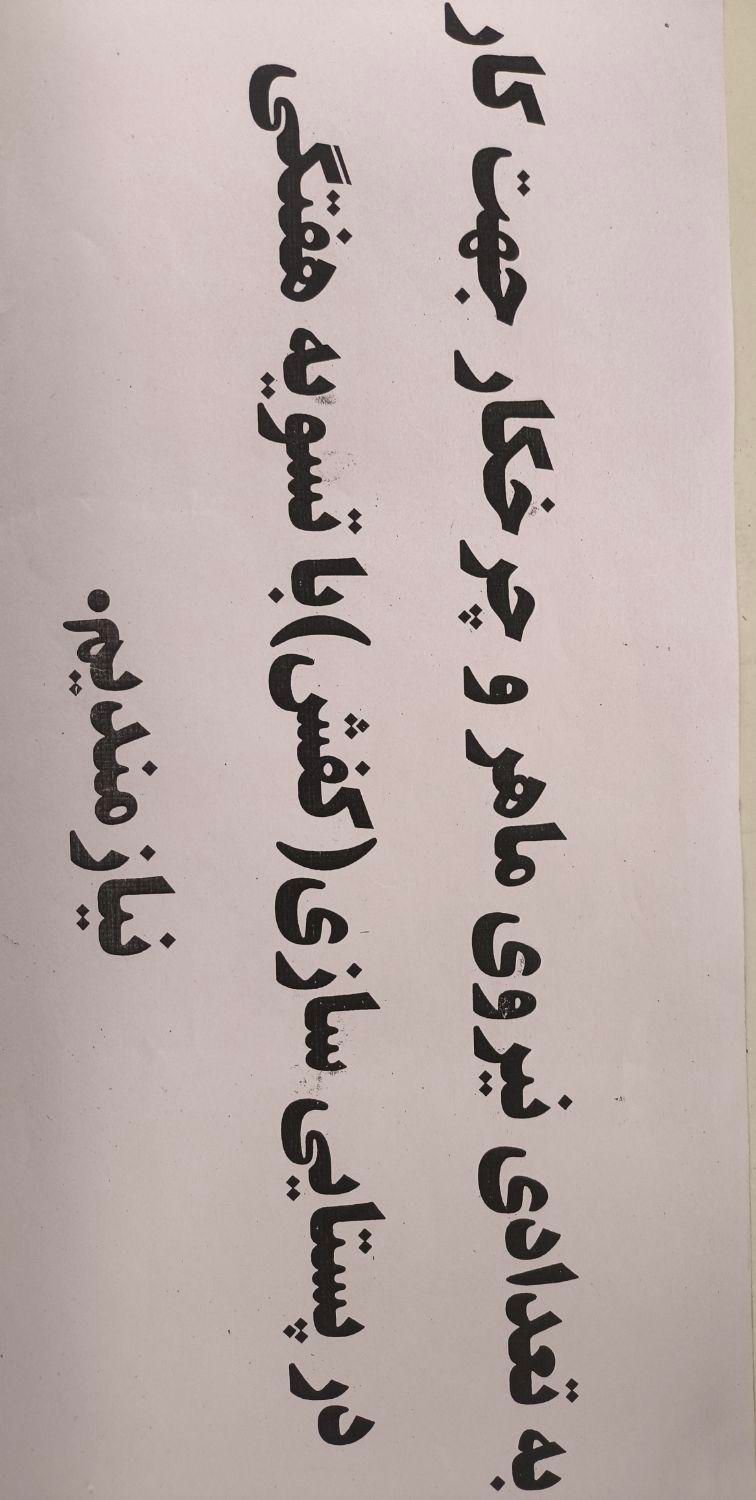 به تعدادی نیروی ماهر و چرخکار جهت کار
در پستایی سازی(کفش)با تسویه هفتگی
نیازمندیم.